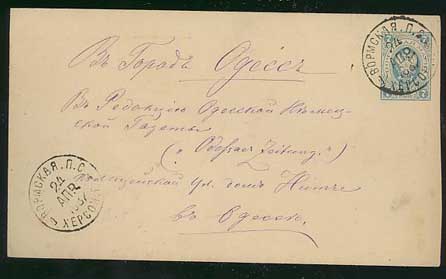 Въ Городъ Одессѣ
Въ Редакцію Одесской Нѣмец-
кой Газеты
("Odessaer Zeitung")
Полицейской ул. домъ
въ Одессѣ.
ВОРМСКАЯ. П. С.
24
АПР
ХЕРСОН.
ВОРМСКАЯ. П. С.
24
АПР
ХЕРСОН.